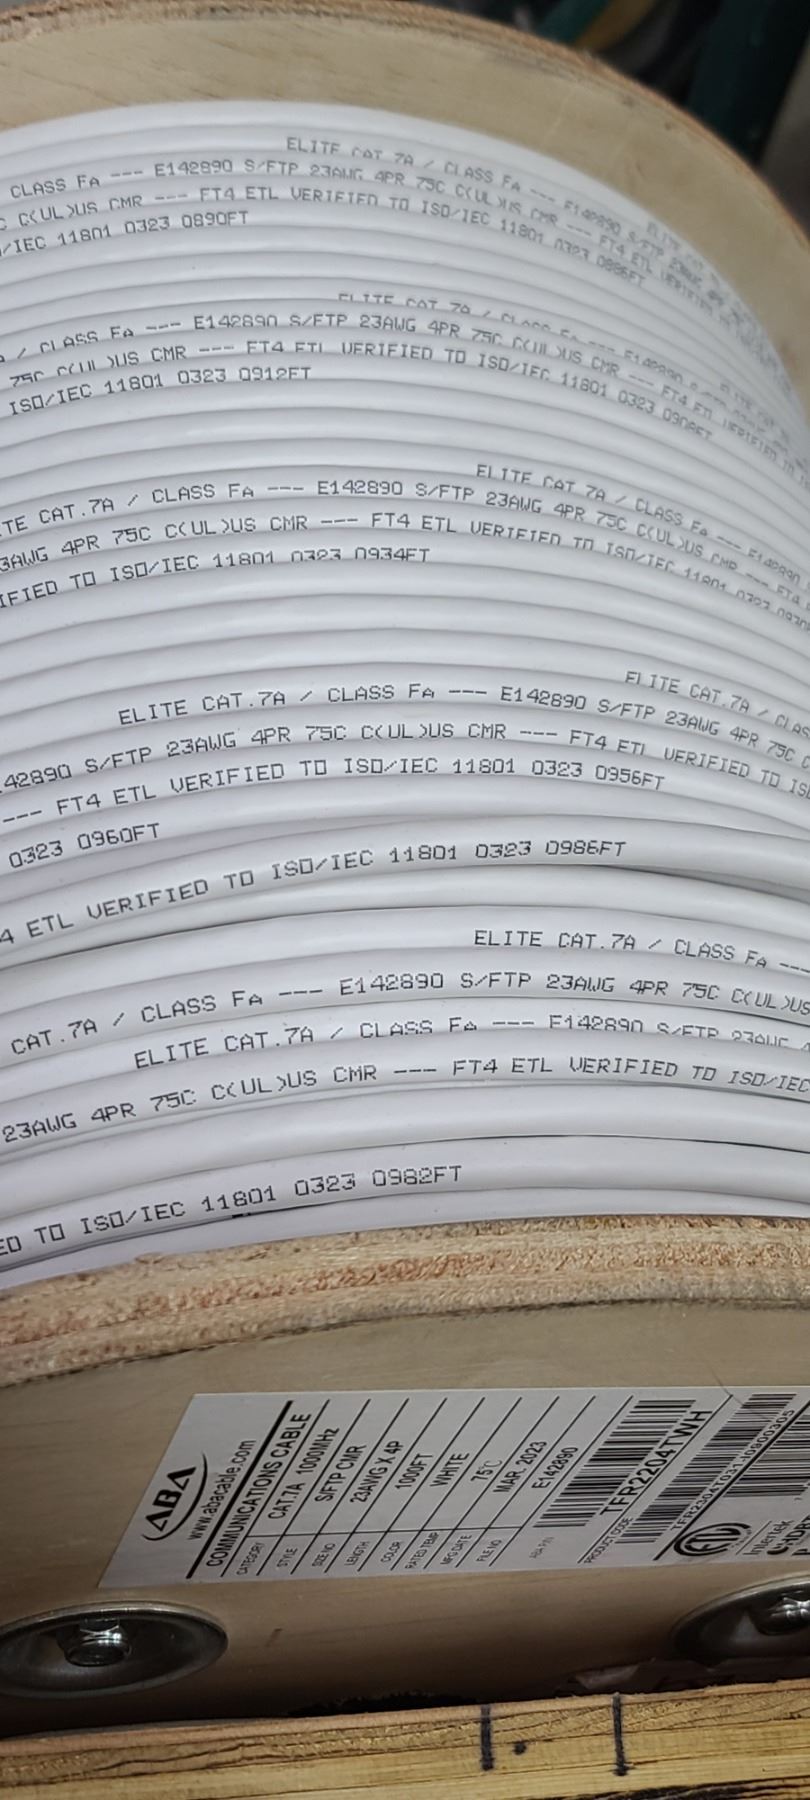 ELITE CAT 7A / CLASS FA --- E142890 S/FTP 23AWG 4PR
CLASS FA --- E142890 S/FTP 23AWG 4PR 75C C(UL)US CMR --- FT4 ETL VERIFIED TO
C(UL)US CMR --- FT4 ETL VERIFIED TO ISO/IEC 11801 0323 0886FT
/IEC 11801 0323 0890FT
ELITE CAT 7A / CLASS FA --- E142890
/ CLASS FA --- E142890 S/FTP 23AWG 4PR 75C C(UL)US CMR --- FT4 ETL VERIFIED TO
75C C(UL)US CMR --- FT4 ETL VERIFIED TO ISO/IEC 11801 0323 0908FT
ISO/IEC 11801 0323 0912FT
ELITE CAT 7A / CLASS FA --- E142890
CAT.7A / CLASS FA --- E142890 S/FTP 23AWG 4PR 75C C(UL)US CMR --- FT4
4PR 75C C(UL)US CMR --- FT4 ETL VERIFIED TO ISO/IEC 11801 0323
IFIED TO ISO/IEC 11801 0323 0934FT
ELITE CAT.7A / CLAS
ELITE CAT.7A / CLASS FA --- E142890 S/FTP 23AWG 4PR 75C
42890 S/FTP 23AWG 4PR 75C C(UL)US CMR --- FT4 ETL VERIFIED TO IS
--- FT4 ETL VERIFIED TO ISO/IEC 11801 0323 0956FT
0323 0960FT
4 ETL VERIFIED TO ISO/IEC 11801 0323 0986FT
ELITE CAT.7A / CLASS FA ---
CAT.7A / CLASS FA --- E142890 S/FTP 23AWG 4PR 75C C(UL)US
ELITE CAT.7A / CLASS FA --- E142890 S/FTP 23AWG
23AWG 4PR 75C C(UL)US CMR --- FT4 ETL VERIFIED TO ISO/IEC
ED TO ISO/IEC 11801 0323 0982FT
ABA
www.abacable.com
COMMUNICATIONS CABLE
CATEGORY CAT.7A 1000MHz
STYLE S/FTP CMR
SIZE NO 23AWG X 4P
LENGTH 1000FT
COLOR WHITE
RATED TEMP 75℃
MFG DATE MAR. 2023
FILE NO E142890
ABA P/N
TFR2204TWH
PRODUCT CODE
ETL
Intertek